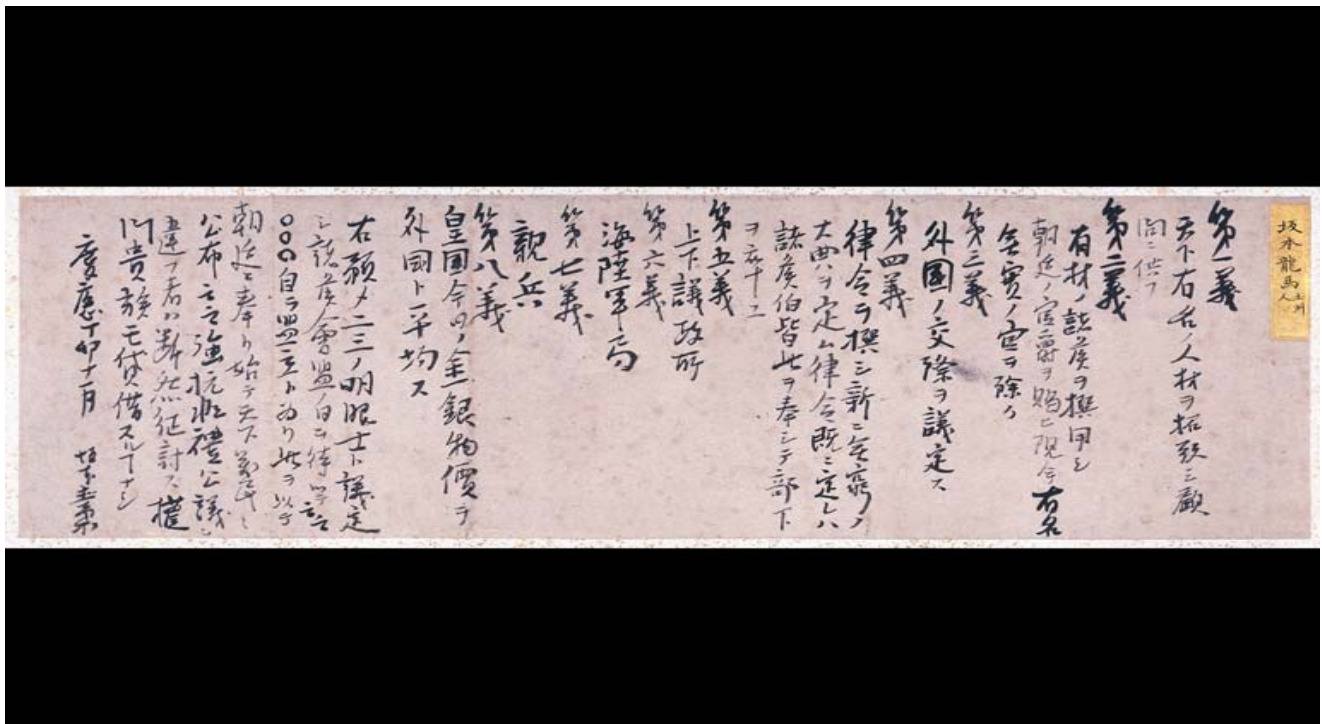 坂本龍馬 土州人
第一義
天下有名ノ人材ヲ招致シ顧
問ニ供フ
第二義
有材ノ諸侯ヲ撰用シ
朝廷ノ官爵ヲ賜ヒ現今有名
無実ノ官ヲ除ク
第三義
外国ノ交際ヲ議定ス
第四義
律令ヲ撰シ新ニ無窮ノ
大典ヲ定ム律令既ニ定レハ
諸侯伯皆此ヲ奉シテ部下
ヲ率ユ
第五義
上下議政所
第六義
海陸軍局
第七義
親兵
第八義
皇国今日ノ金銀物價ヲ
外国ト平均ス
右預メ二三ノ明眼士ト議定
シ諸侯會盟ノ日ヲ待ツテ云云
○○○自ラ盟主ト為リ此ヲ以テ
朝廷ニ奉リ始テ天下萬民ニ
公布云云強抗非禮公議ニ
違フ者ハ断然征討ス權
門貴族モ貸借スルヿナシ
慶應丁卯十一月 坂本直柔